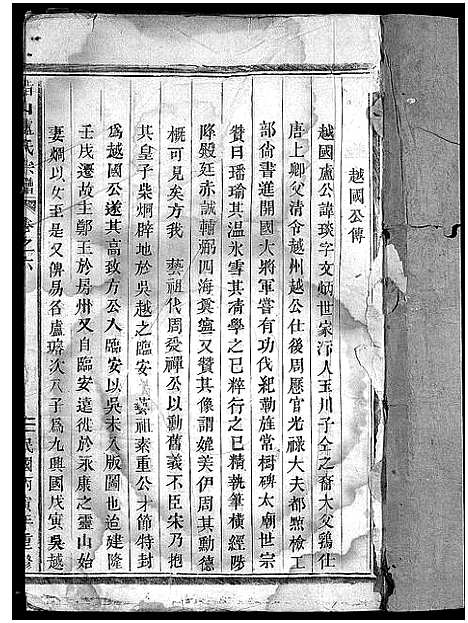 越國公傳
越國盧公諱琰字文炳世家汴人玉川子仝之裔大父鶚仕
唐上卿父清令越州越公仕後周歷官光祿大夫都點檢工
部尚書進開國大將軍嘗有功伐紀勒旂常樹碑太廟世宗
贊曰璠瑜其溫氷雪其清學之已粹行之已精執筆橫經陟
降殿廷赤誠輔弼四海奠寧又贊其像謂媲美伊周其勳德
概可見矣方我 藝祖代周受禪公以勳舊義不臣宋乃抱
其皇子柴炯辟地於吳越之臨安 藝祖素重公才節特封
為越國公遂其高致方公入臨安以吳未入版圖也迨建隆
壬戌遷故主鄭王於房州又自臨安遠徙於永康之靈山始
妻炯以女至是又俾易名盧璿次八子為九興國戊寅吳越
山盧氏宗譜 卷之六 民國丙寅年重修